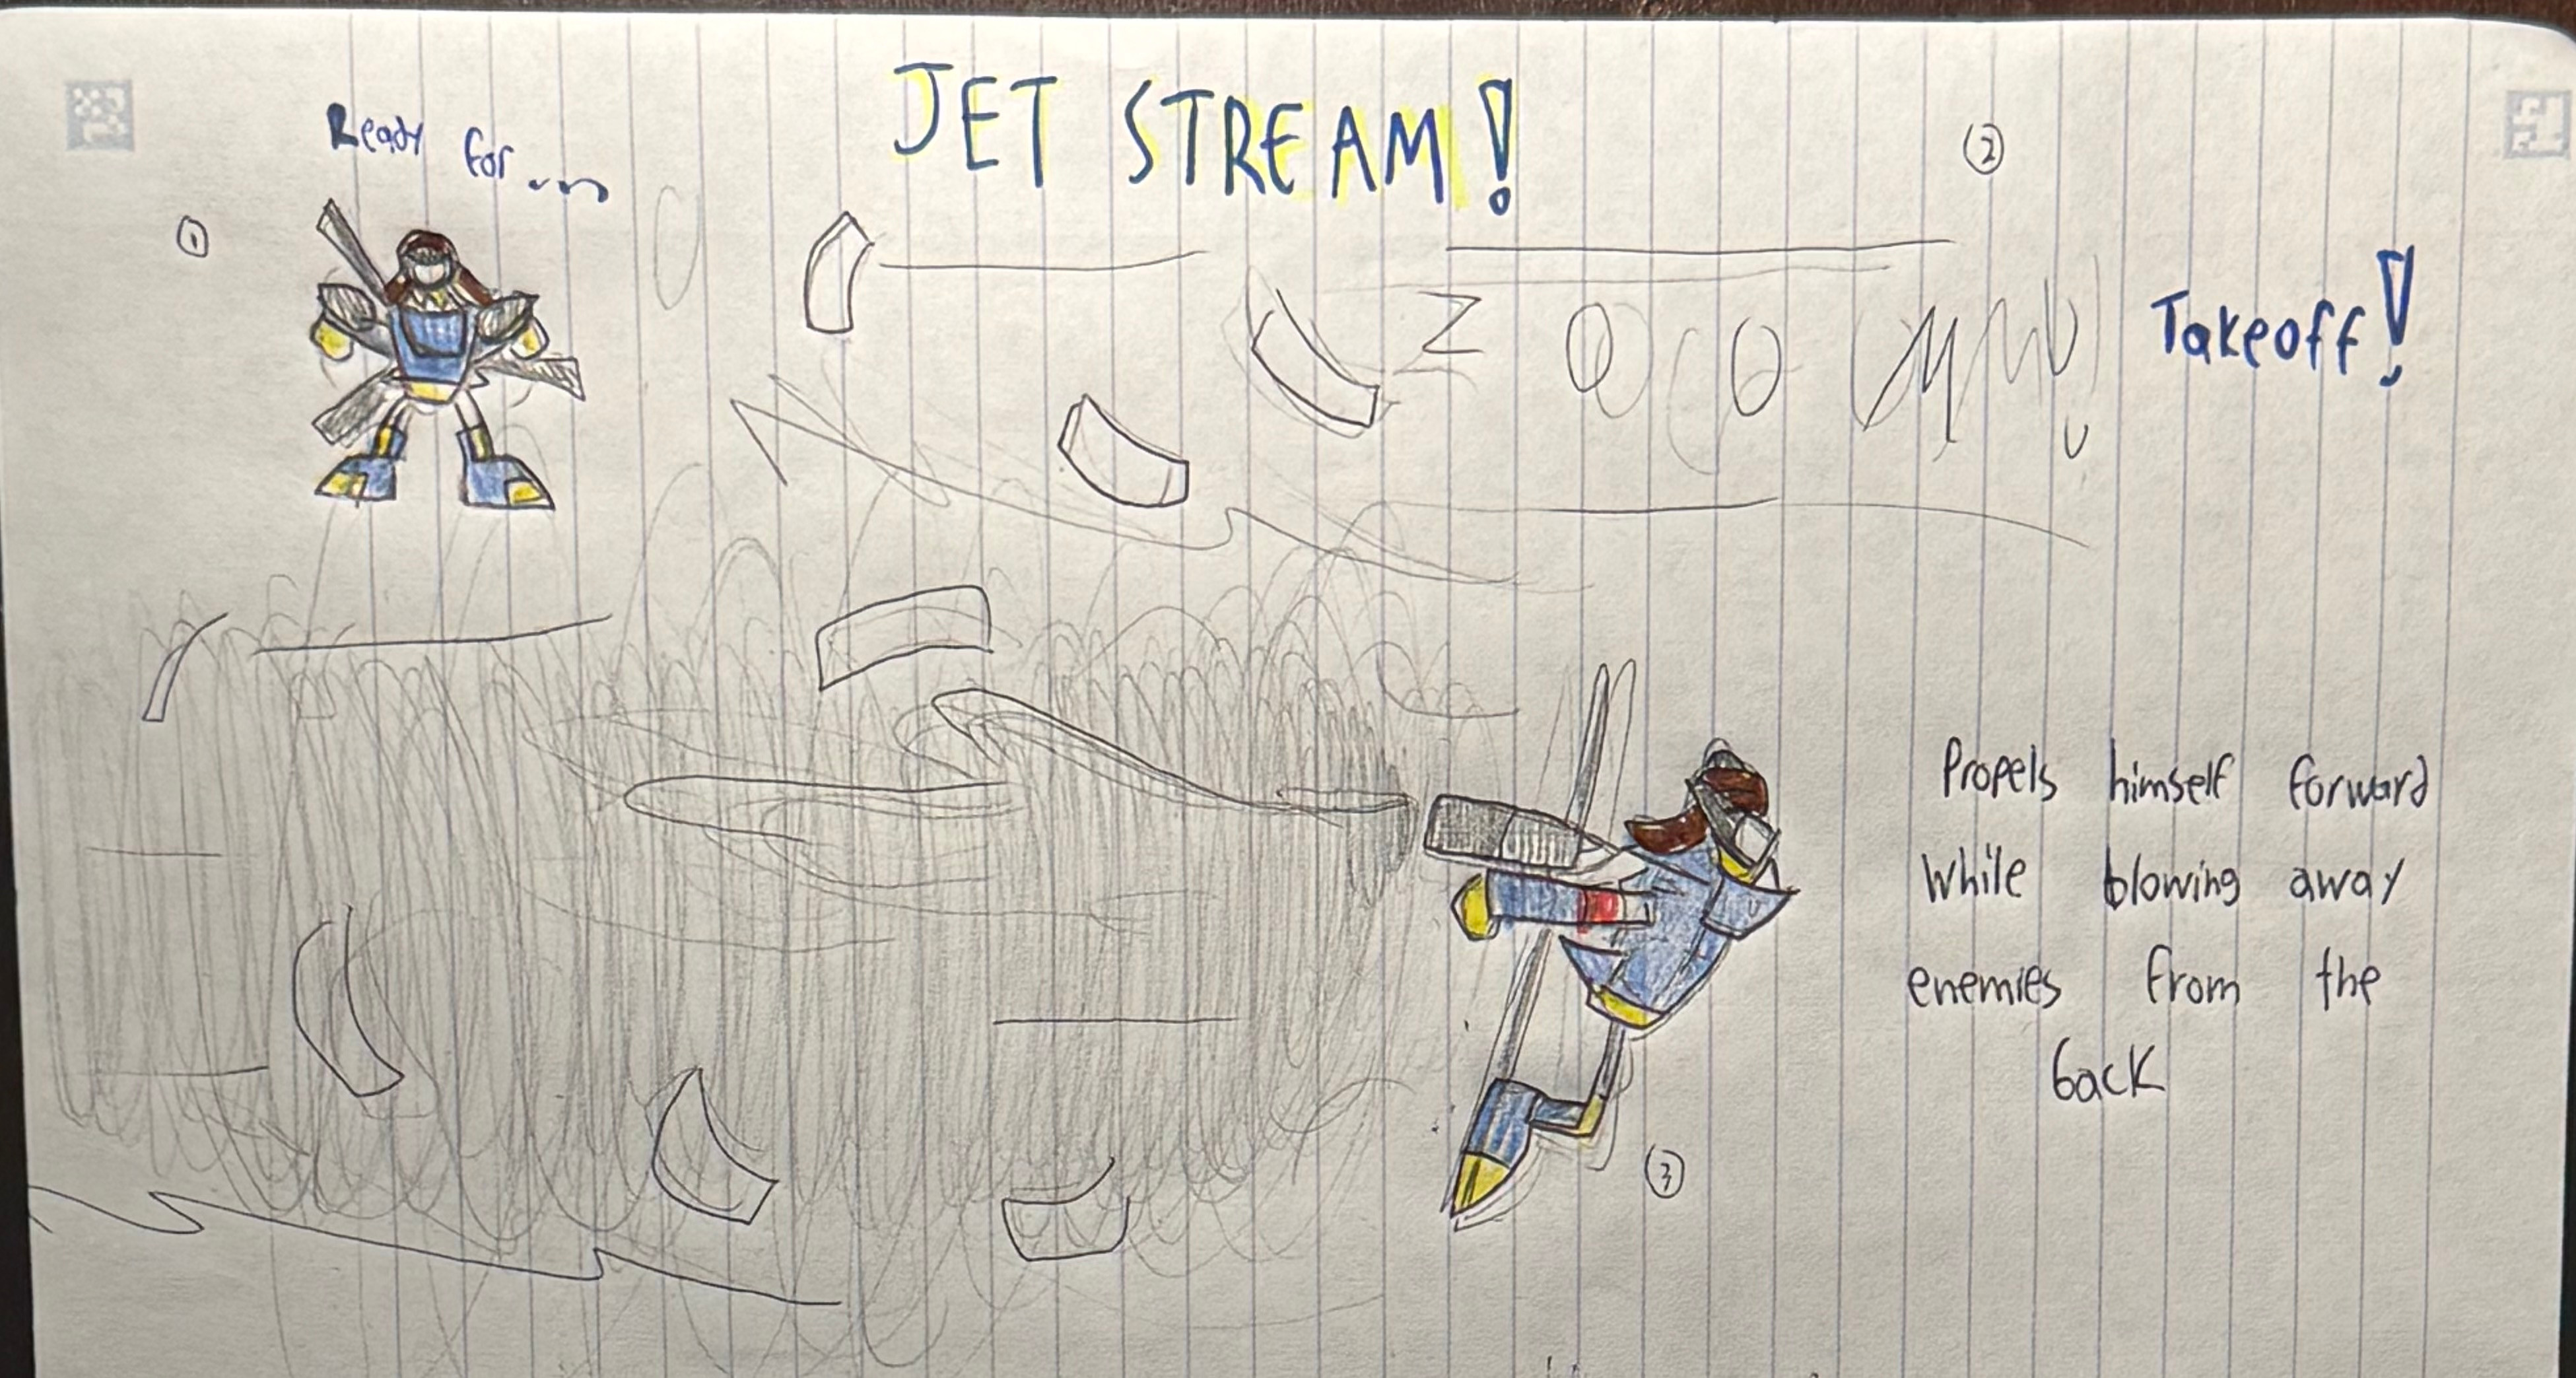 JET STREAM!
①
Ready for...
②
ZOOMMM
Takeoff!
Propels himself forward
while blowing away
enemies from the
back
③